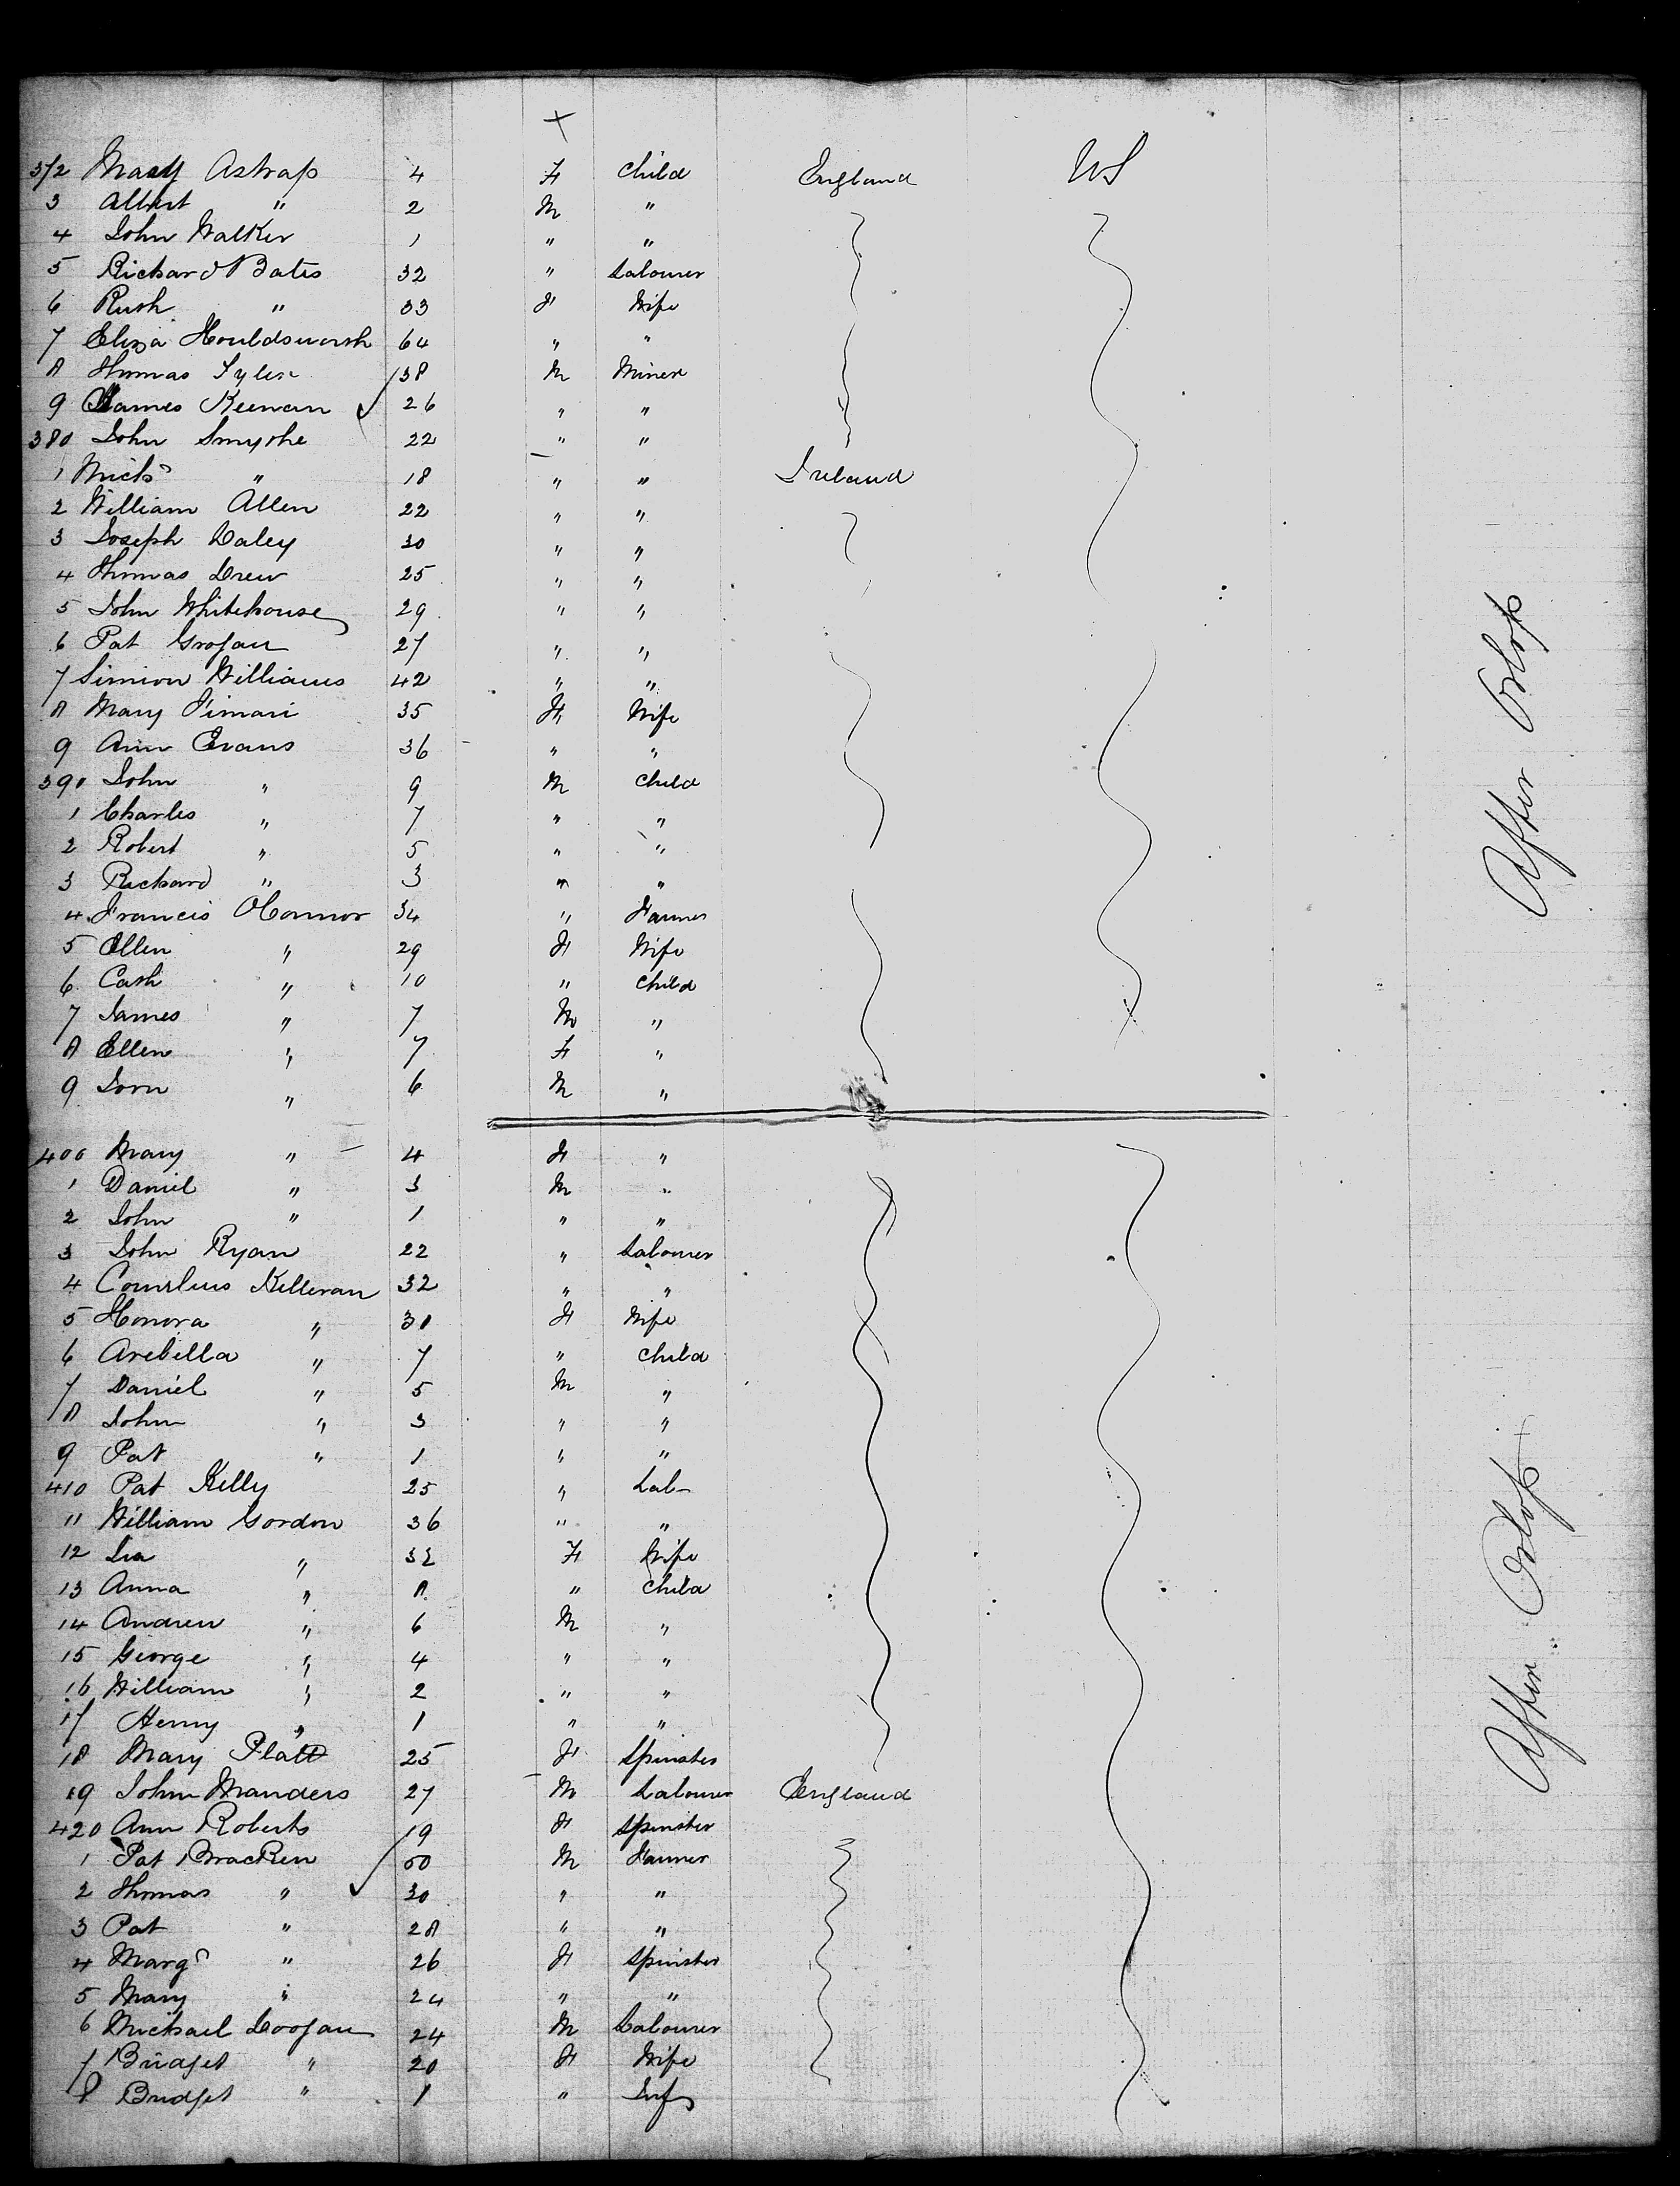 +
372 Mary Astrap 4 F Child England US
3 Albert " 2 M "
4 John Walker 1 " "
5 Richard Bates 32 " Labourer
6 Ruth " 33 F Wife
7 Eliza Houldsworth 64 " "
8 Thomas Tyler 38 M Miner
9 James Keenan ✓ 26 " "
380 John Smythe 22 " "
1 Michl " 18 " " Ireland
2 William Allen 22 " "
3 Joseph Daley 30 " "
4 Thomas Drew 25 " "
5 John Whitehouse 29 " "
6 Pat Grogan 27 " "
7 Simion Williams 42 " "
8 Mary 35 F Wife
9 Ann Evans 36 " "
390 John " 9 M Child
1 Charles " 7 " "
2 Robert " 5 " "
3 Richard " 3 " "
4 Francis OConnor 34 " Farmer
5 Ellen " 29 F Wife
6 Cath " 10 " Child
7 James " 7 M "
8 Ellen " 7 F "
9 " 6 M "
After Orlop
400 Mary " 4 F "
1 Daniel " 3 M "
2 John " 1 " "
3 John Ryan 22 " Labourer
4 Cornelius Killeran 32 " "
5 Honora " 30 F Wife
6 Arebella " 7 " Child
7 Daniel " 5 M "
8 John " 3 " "
9 Pat " 1 " "
410 Pat Kelly 25 " Lab
11 William Gordon 36 " "
12 " 32 F Wife
13 Anna " 8 " Child
14 Andrew " 6 M "
15 George " 4 " "
16 William " 2 " "
17 Henry " 1 " "
18 Mary Platt 25 F Spinster
19 John Manders 27 M Labourer England
420 Ann Roberts 19 F Spinster
1 Pat Bracken ✓ 60 M Farmer
2 Thomas " 30 " "
3 Pat " 28 " "
4 Margt " 26 F Spinster
5 Mary " 24 " "
6 Michael Googan 24 M Labourer
7 Bridget " 20 F Wife
8 Bridget " 1 " Inf
After Orlop